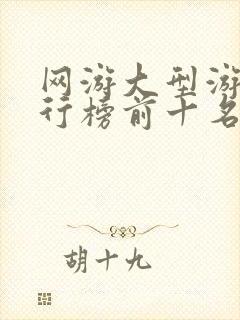 网游大型游
行榜前十名
胡十九